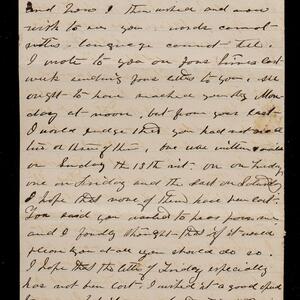 and how I then wished and now
wish to see you words cannot
utter - language cannot tell.
I wrote to you on four times last
week sending four letters to you,
ought to have reached you by Mon-
day at noon, but from your last
I would judge that you had not recd
two or three of them, one was written
on Sunday the 13th inst. on Tuesday
one on Friday and the last on Saturday
I hope that none of them have been lost.
You said you wanted to hear from me
and I fondly thought that if it would
please you at all you should do so.
I hope that the letter of Friday especially
has not been lost. I wished at a good